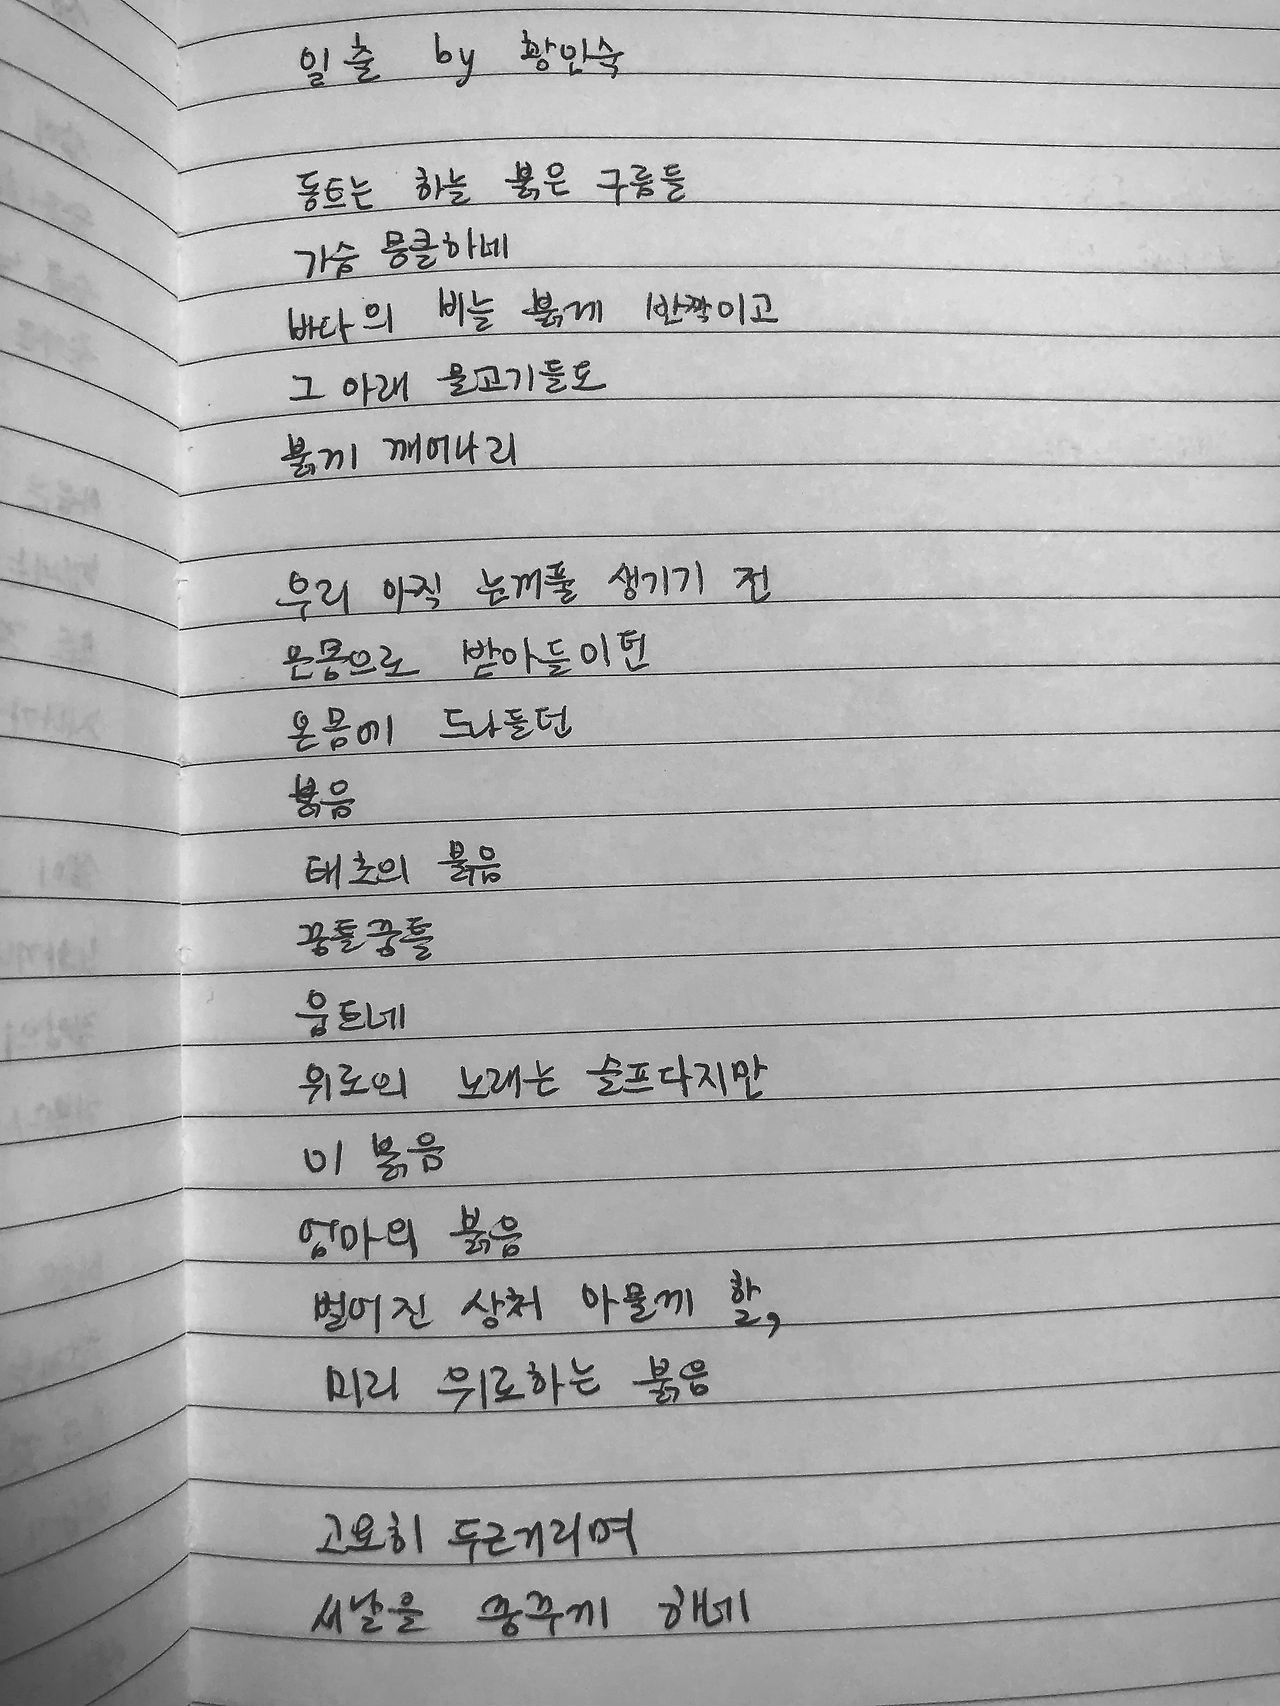 일출 by 황인숙
동트는 하늘 붉은 구름들
가슴 뭉클하네
바다의 비늘 붉게 반짝이고
그 아래 물고기들도
붉게 깨어나리
우리 아직 눈꺼풀 생기기 전
온몸으로 받아들이던
온몸에 드나들던
붉음
태초의 붉음
꿈틀꿈틀
움트네
위로의 노래는 슬프다지만
이 붉음
엄마의 붉음
벌어진 상처 아물게 할,
미리 위로하는 붉음
고요히 두근거리며
새날을 꿈꾸게 하네